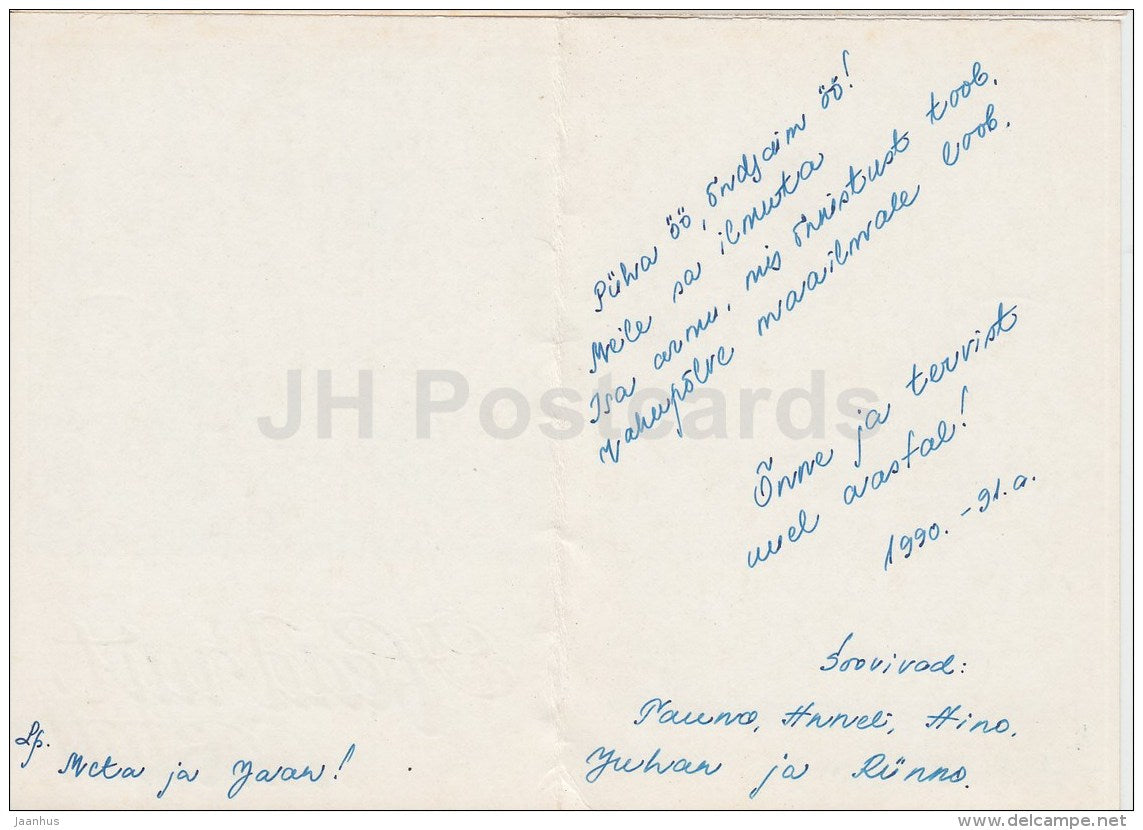 Lp.
Meta ja Jaan!
Püha öö, õndsaim öö!
Meile sa ilmuta
Isa armu, mis õnnistust toob.
Rahupõlve maailmale loob.
Õnne ja tervist
uuel aastal!
1990.-91.a.
Soovivad:
Tauno, Anneli, Aino,
Juhan ja Rünno.
JH Postcards
Jaanhus
www.delcampe.net